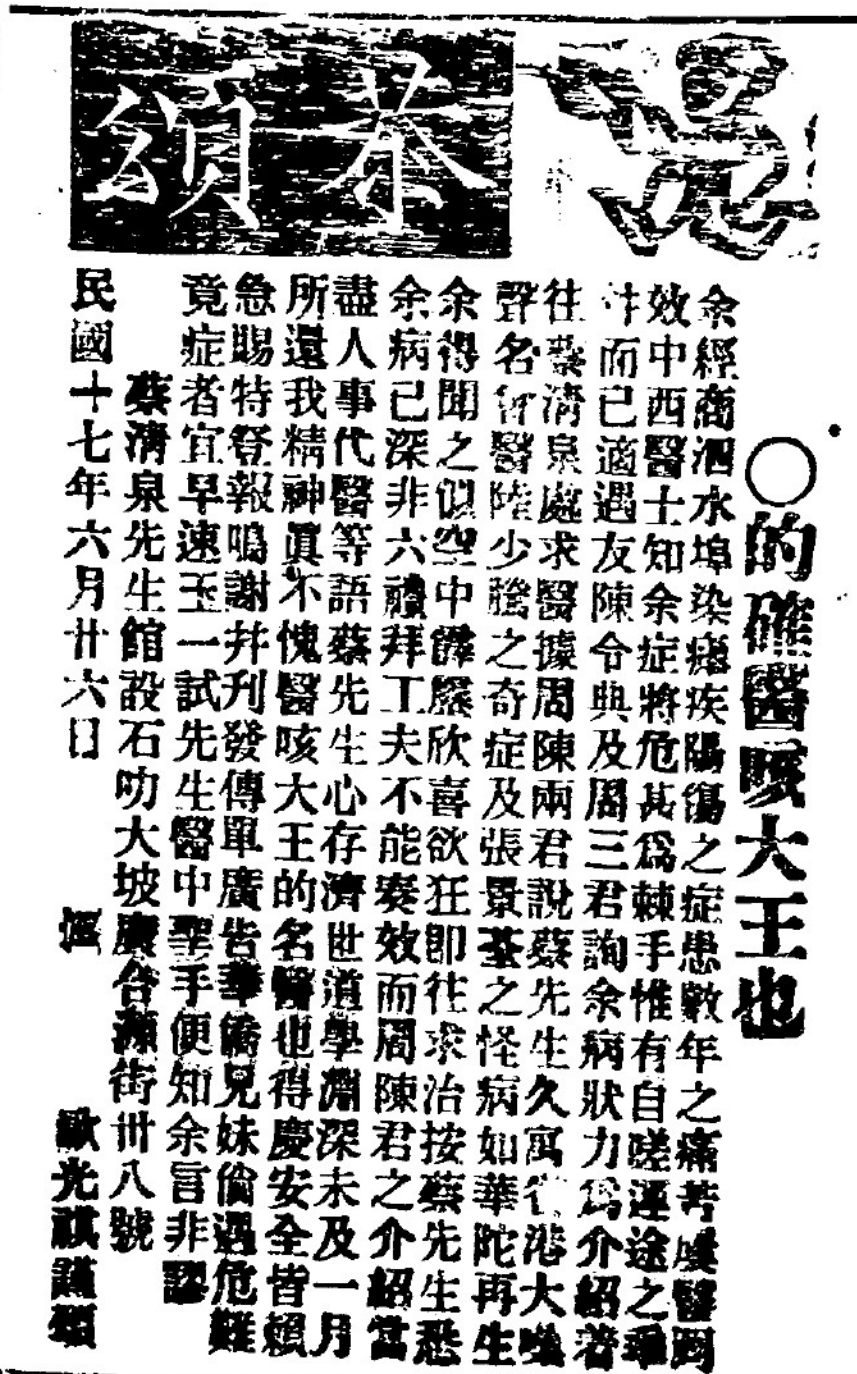 恭頌
○的確醫咳大王也
余經商泗水埠染癆疾陽傷之症患數年之痛苦屢醫罔
效中西醫士知余症將危甚爲棘手惟有自嗟運途之乖
舛而已適遇友陳令典及周三君詢余病狀力爲介紹著
往蔡清泉處求醫據周陳兩君說蔡先生久寓香港大噪
聲名曾醫陸少騰之奇症及張景荃之怪病如華陀再生
余得聞之似空中霹靂欣喜欲狂即往求治按蔡先生悉
余病已深非六禮拜工夫不能奏效而周陳君之介紹當
盡人事代醫等語蔡先生心存濟世道學淵深未及一月
所還我精神眞不愧醫咳大王的名醫也得慶安全皆賴
急賜特登報鳴謝并刊發傳單廣告華僑兄妹倘遇危難
竟症者宜早速玉一試先生醫中聖手便知余言非謬
蔡清泉先生館設石叻大坡廣合源街卅八號
民國十七年六月廿六日 光祺謹頌